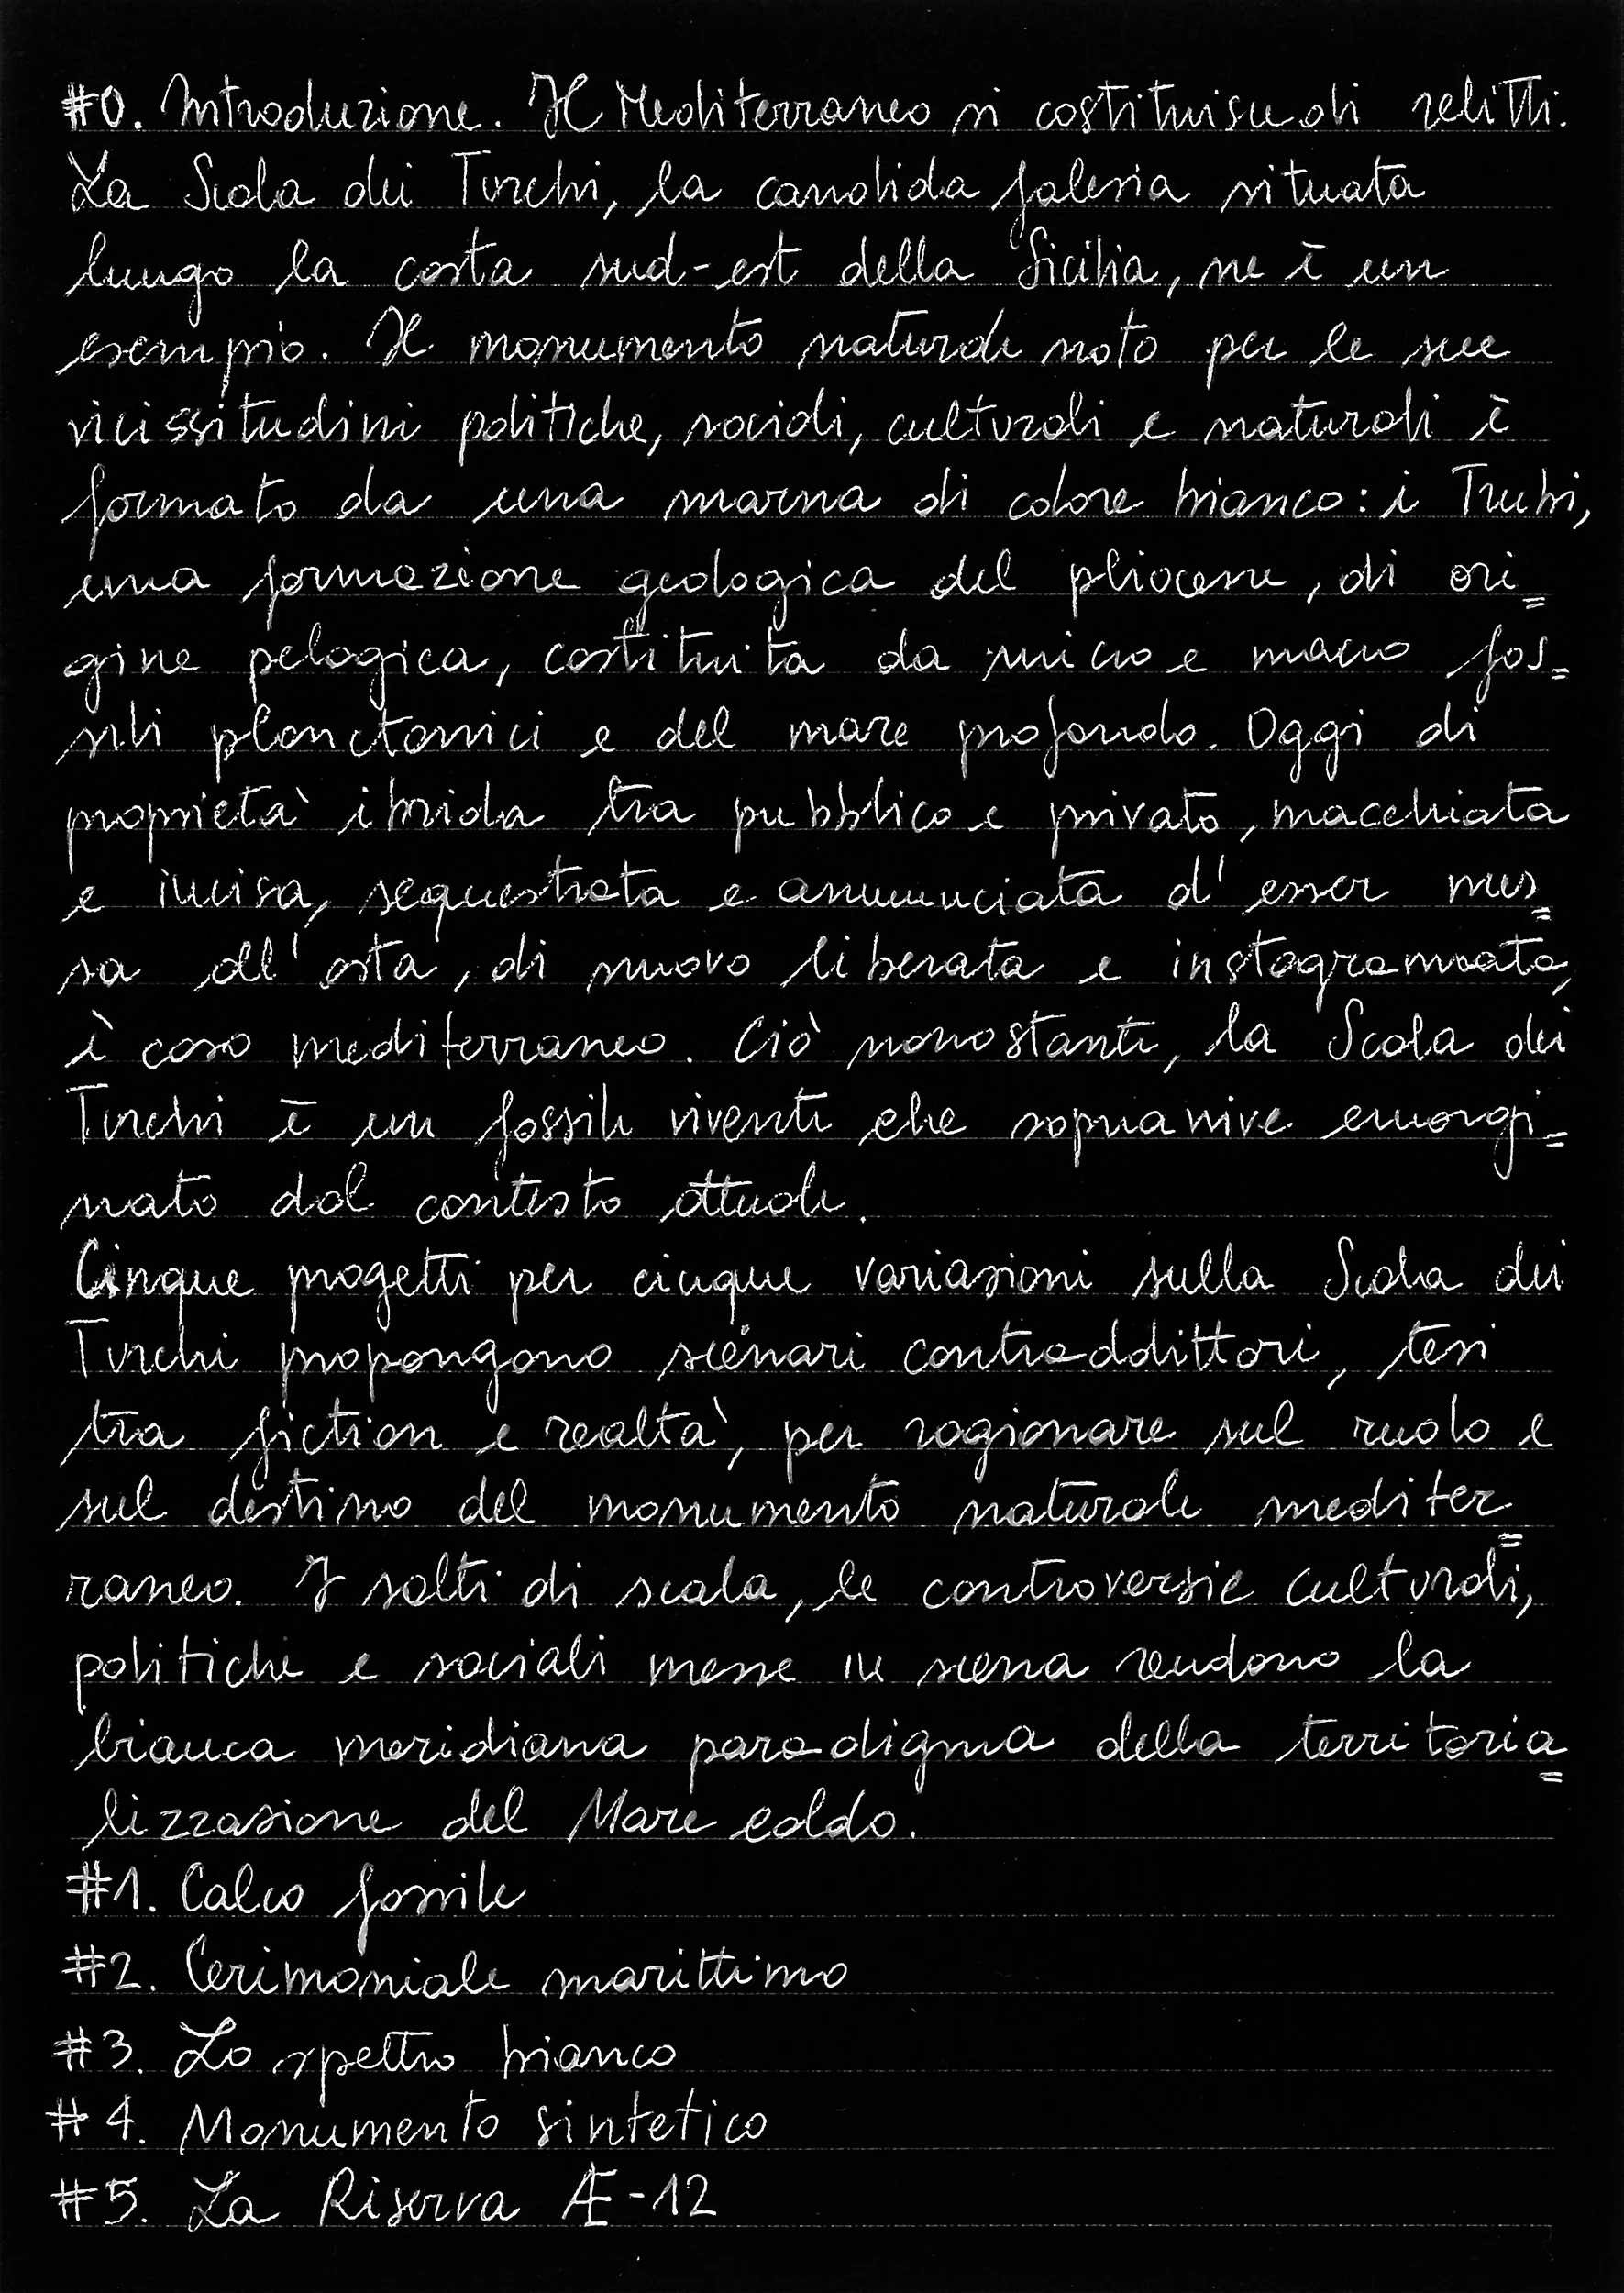 #0. Introduzione. Il Mediterraneo si costituisce di relitti.
La Scala dei Turchi, la candida falesia situata
lungo la costa sud-est della Sicilia, ne è un
esempio. Il monumento naturale noto per le sue
vicissitudini politiche, sociali, culturali e naturali è
formato da una marna di colore bianco: i Trubi,
una formazione geologica del pliocene, di ori=
gine pelagica, costituita da micro e macro fos=
sili planctonici e del mare profondo. Oggi di
proprietà ibrida tra pubblico e privato, macchiata
e incisa, sequestrata e annunciata d'esser mes=
sa all'asta, di nuovo liberata e instagrammata,
è caso mediterraneo. Ciò nonostante, la Scala dei
Turchi è un fossile vivente che sopravvive emargi=
nato dal contesto attuale.
Cinque progetti per cinque variazioni sulla Scala dei
Turchi propongono scenari contraddittori, tesi
tra fiction e realtà, per ragionare sul ruolo e
sul destino del monumento naturale mediter=
raneo. I salti di scala, le controversie culturali,
politiche e sociali messe in scena rendono la
bianca meridiana paradigma della territoria=
lizzazione del Mare caldo.
#1. Calco fossile
#2. Cerimoniale marittimo
#3. Lo spettro bianco
#4. Monumento sintetico
#5. La Riserva Æ-12